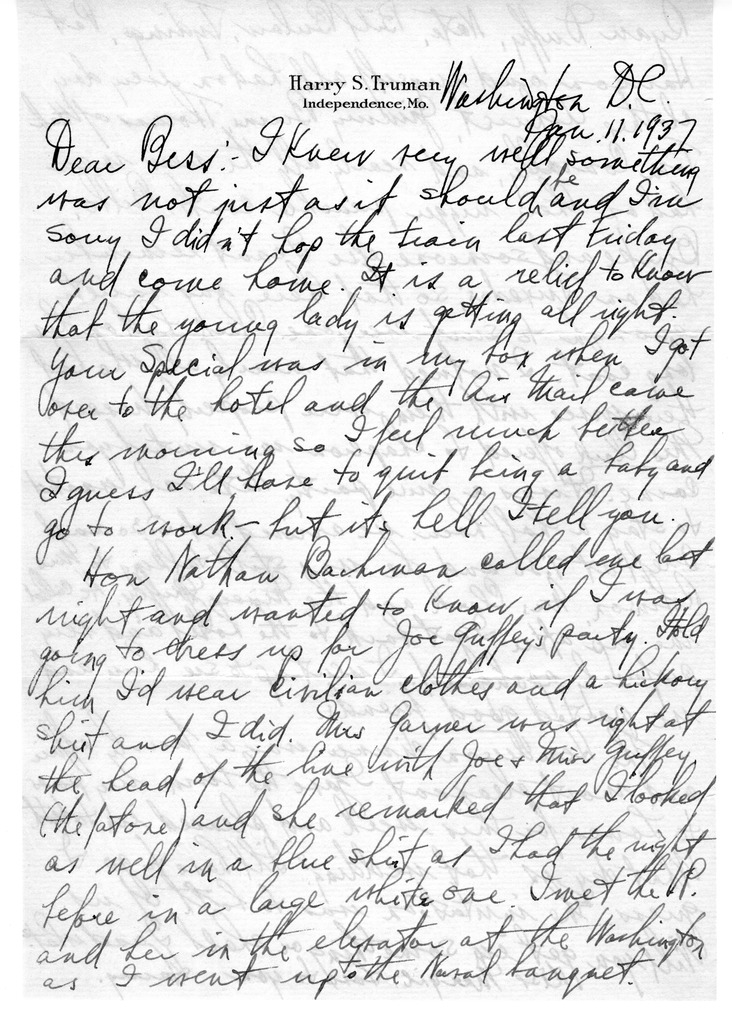 Harry S. Truman
Independence, Mo.
Washington D.C.
Jan. 11, 1937
Dear Bess:- I knew very well something
was not just as it should be and I'm
sorry I didn't hop the train last Friday
and come home. It is a relief to know
that the young lady is getting all right.
Your Special was in my box when I got
over to the hotel and the Air Mail came
this morning so I feel much better
I guess I'll have to quit being a baby and
go to work - but its hell I tell you.
Hon Nathan Bachman called me last
night and wanted to know if I was
going to dress up for Joe Guffey's party. I told
him I'd wear civilian clothes and a hickory
shirt and I did. Mrs Garner was right at
the head of the line with Joe & Miss Guffey
(the one) and she remarked that I looked
as well in a blue shirt as I had the night
before in a large white one. I met the V.P.
and her in the elevator at the Washington
as I went up to the Naval banquet.